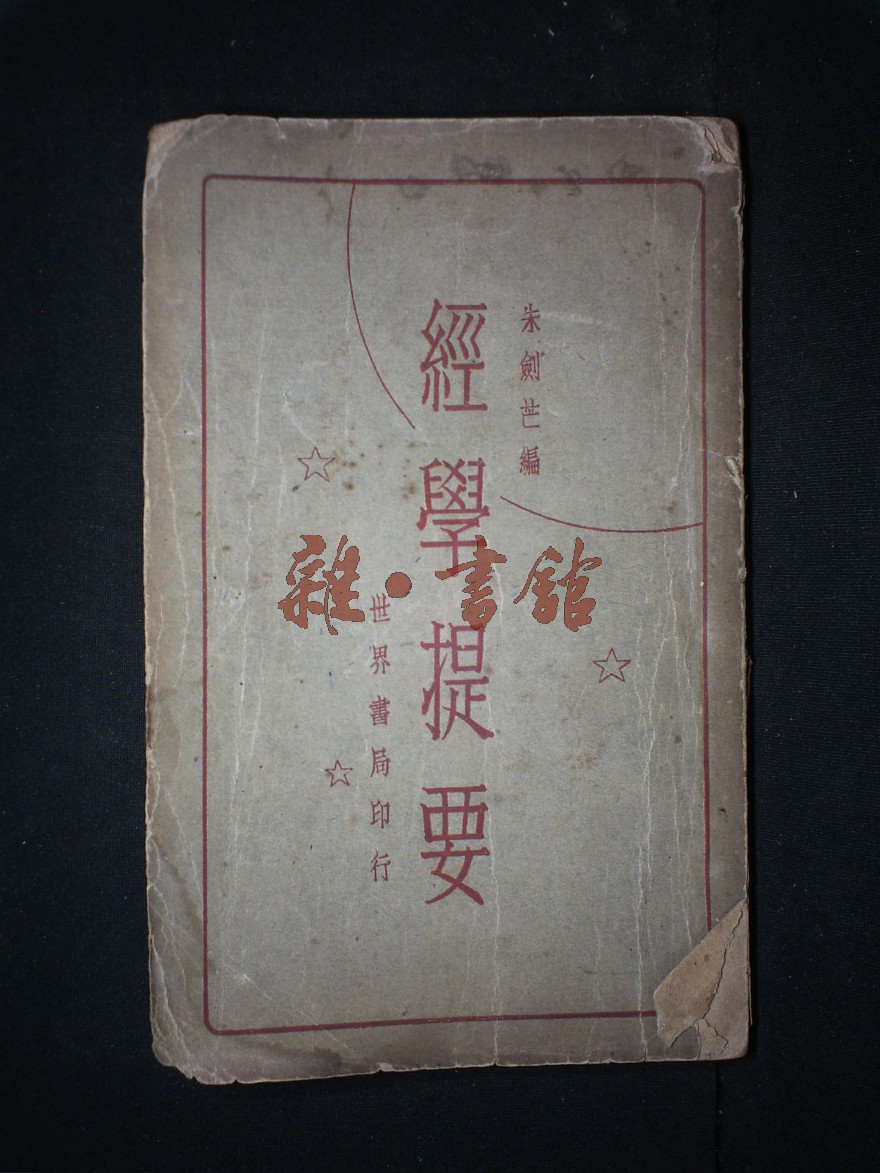 朱劍芒編
經學提要
世界書局印行
雜·書館